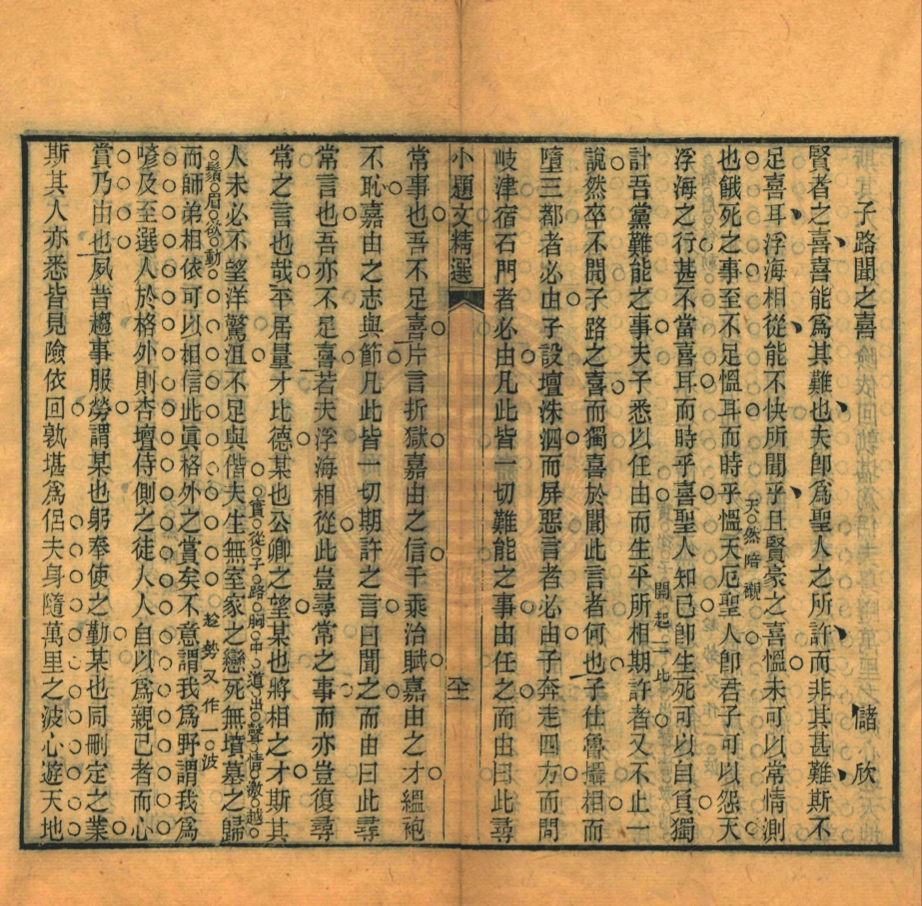 子路聞之喜　儲欣
賢者之喜喜能爲其難也夫卽爲聖人之所許而非其甚難斯不
足喜耳浮海相從能不快所聞乎且賢豪之喜慍未可以常情測
天然暗襯
也餓死之事至不足慍耳而時乎慍天厄聖人卽君子可以怨天
浮海之行甚不當喜耳而時乎喜聖人知己卽生死可以自負獨
開起二比
計吾黨難能之事夫子悉以任由而生平所相期許者又不止一
說然卒不聞子路之喜而獨喜於聞此言者何也子仕魯攝相而
墮三都者必由子設壇洙泗而屏惡言者必由子奔走四方而問
岐津宿石門者必由凡此皆一切難能之事由任之而由曰此尋
小題文精選
常事也吾不足喜片言折獄嘉由之信千乘治賦嘉由之才縕袍
不恥嘉由之志與節凡此皆一切期許之言曰聞之而由曰此尋
常言也吾亦不足喜若夫浮海相從此豈尋常之事而亦豈復尋
常之言也哉平居量才比德某也公卿之望某也將相之才斯其
實從子路胸中道出聲情激越
人未必不望洋驚沮不足與偕夫生無室家之戀死無墳墓之歸
鬚眉欲動
而師弟相依可以相信此眞格外之賞矣不意謂我爲野謂我爲
趁勢又作一波
喭及至選人於格外則杏壇侍側之徒人人自以爲親己者而心
賞乃由也夙昔趨事服勞謂某也躬奉使之勤某也同刪定之業
斯其人亦悉皆見險依回孰堪爲侶夫身隨萬里之波心遊天地